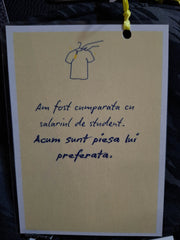 Am fost cumparata cu
salariul de student.
Acum sunt piesa lui
preferata.